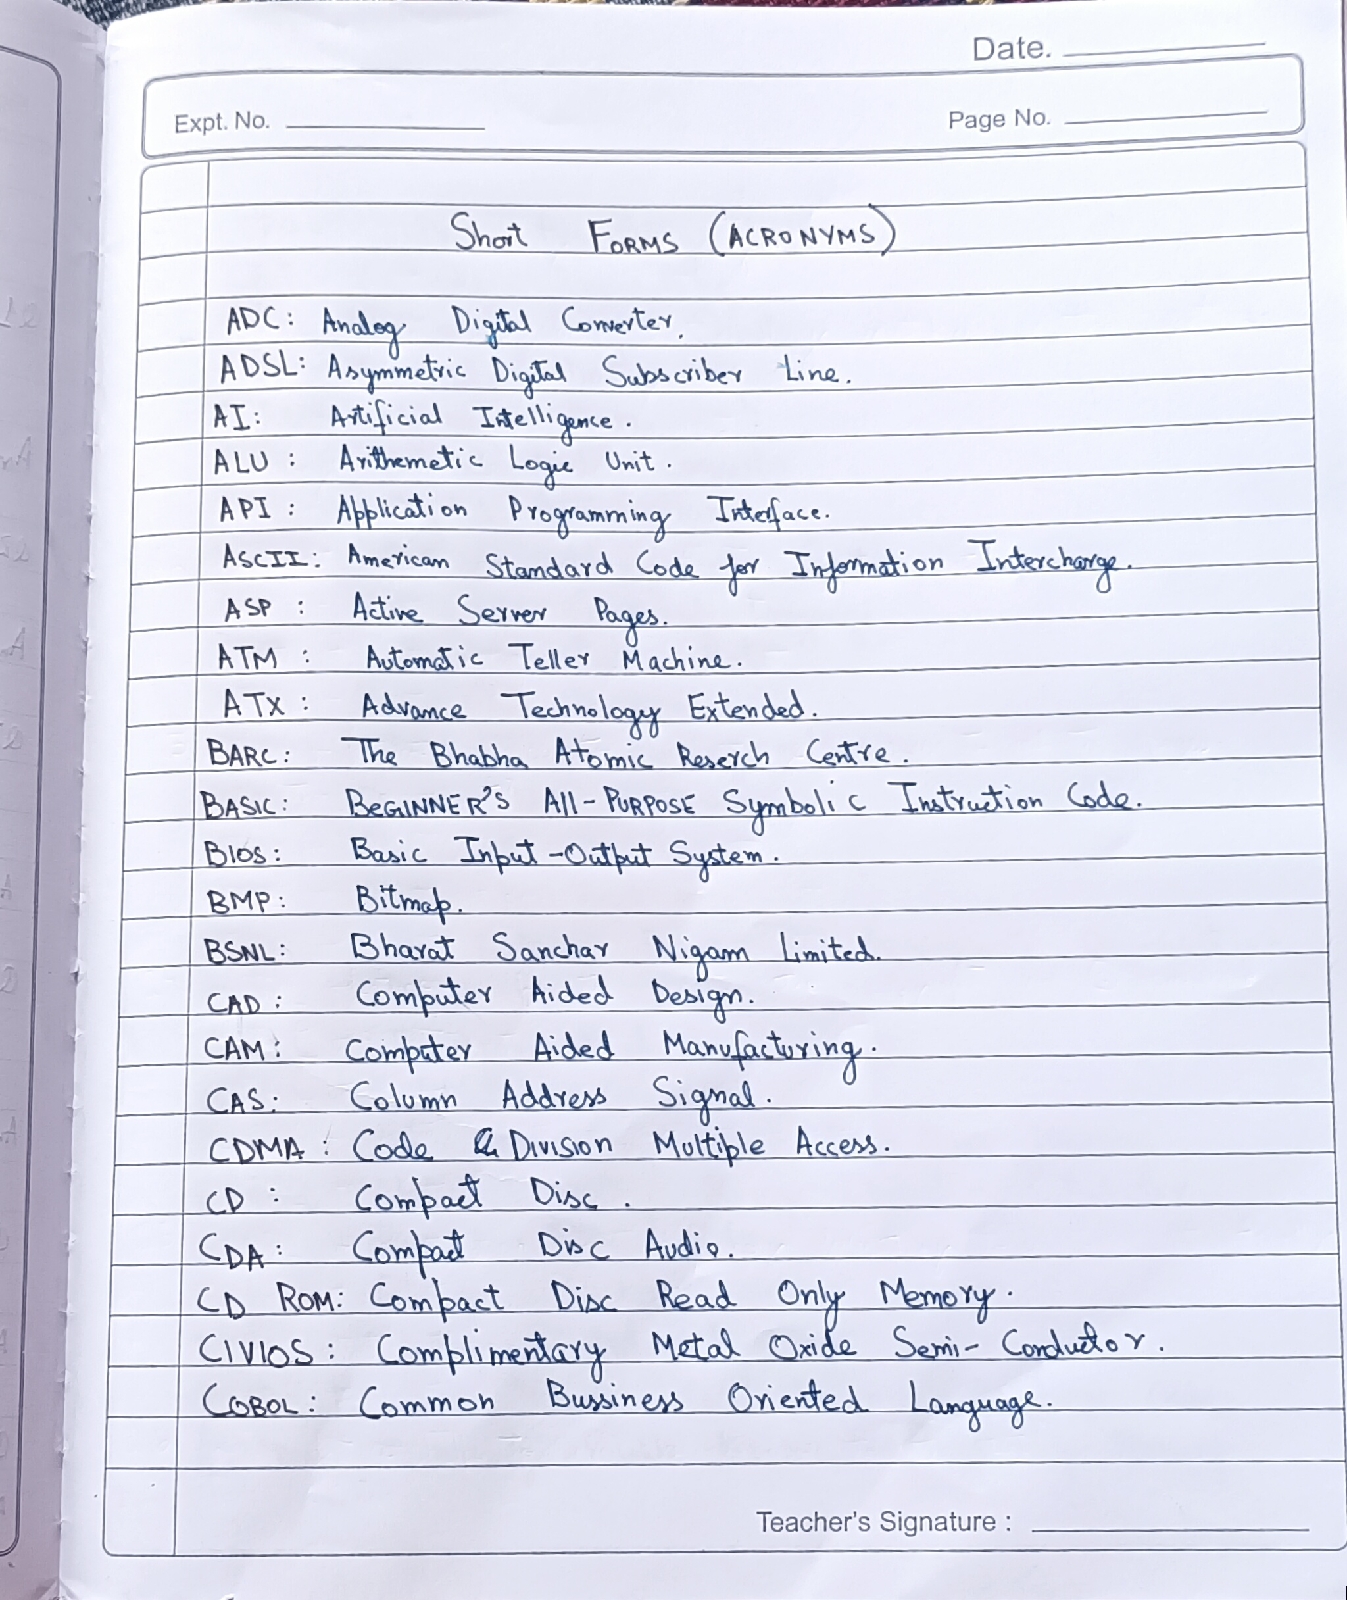 Date.
Expt. No.
Page No.
Short FORMS (ACRONYMS)
ADC: Analog Digital Converter.
ADSL: Asymmetric Digital Subscriber Line.
AI: Artificial Intelligence.
ALU: Arithemetic Logic Unit.
API: Application Programming Interface.
ASCII: American Standard Code for Information Interchange.
ASP: Active Server Pages.
ATM: Automatic Teller Machine.
ATX: Advance Technology Extended.
BARC: The Bhabha Atomic Reserch Centre.
BASIC: BEGINNER'S All-PURPOSE Symbolic Instruction Code.
BIOS: Basic Input-Output System.
BMP: Bitmap.
BSNL: Bharat Sanchar Nigam Limited.
CAD: Computer Aided Design.
CAM: Computer Aided Manufacturing.
CAS: Column Address Signal.
CDMA: Code Division Multiple Access.
CD: Compact Disc.
CDA: Compact Disc Audio.
CD ROM: Compact Disc Read Only Memory.
CIVIOS: Complimentary Metal Oxide Semi-Conductor.
COBOL: Common Bussiness Oriented Language.
Teacher's Signature :